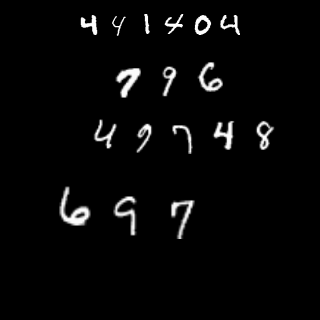 441404
796
49748
697